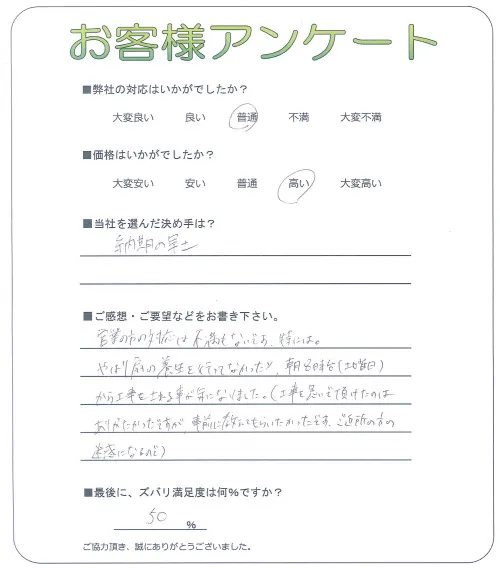 お客様アンケート
■弊社の対応はいかがでしたか？
大変良い 良い 普通 不満 大変不満
■価格はいかがでしたか？
大変安い 安い 普通 高い 大変高い
■当社を選んだ決め手は？
納期の早さ
■ご感想・ご要望などをお書き下さい。
営業の方の対応は不満もないです、特には。
やはり床の養生を行ってなかったり、朝8時台(土曜日)
から工事をされる事が気になりました。(工事を急いで頂けたのは
ありがたかったですが、事前に教えてもらいたかったです、ご近所の方の
迷惑になるので)
■最後に、ズバリ満足度は何%ですか？
50 %
ご協力頂き、誠にありがとうございました。